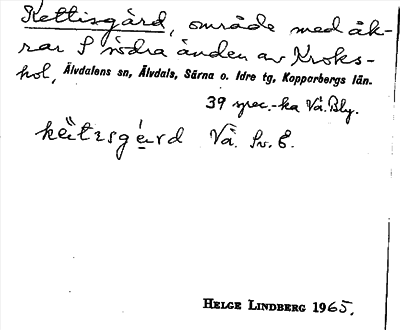 Kettisgård, område med åk-
rar i södra änden av Kroks-
hol, Älvdalens sn, Älvdals, Särna o. Idre tg, Kopparbergs län.
39 Vå. Bly.
Vå. Sv. E.
HELGE LINDBERG 1965.